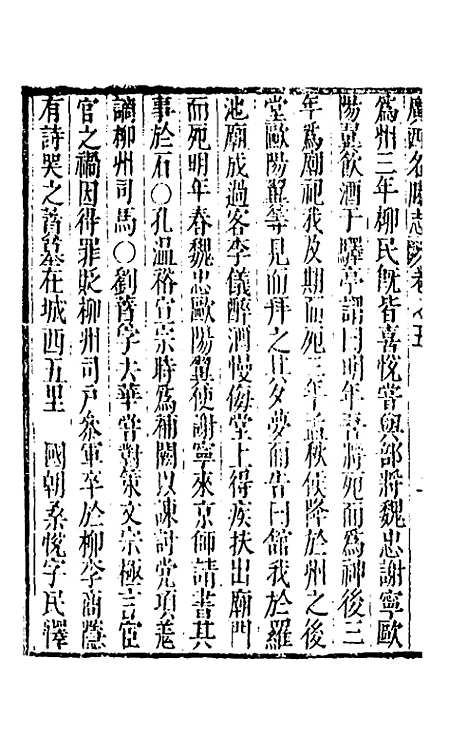 廣西名勝志卷之五
爲州三年柳民旣皆喜悅嘗與部將魏忠謝寧歐
陽翼飲酒于驛亭謂曰明年吾將死而爲神後三
年爲廟祀我及期而死三年孟秋侯降於州之後
堂歐陽翼等見而拜之其夕夢翼而告曰館我於羅
池廟成過客李儀醉酒慢侮堂上得疾扶出廟門
而死明年春魏忠歐陽翼使謝寧來京師請書其
事於石○孔溫裕宣宗時爲補闕以諫討党項羌
謫柳州司馬○劉蕡字大華嘗對策文宗極言宦
官之禍因得罪貶柳州司戶參軍卒於柳李商隱
有詩哭之蕡墓在城西五里 國朝桑悅字民懌